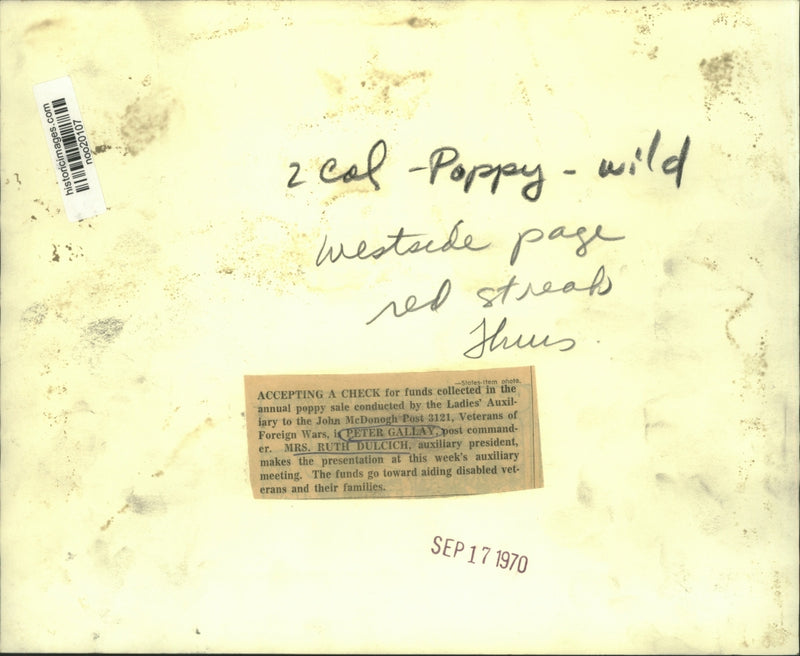 historicimages.com
noo20107
2 Col - Poppy - wild
Westside page
red streak
Thurs.
—States-Item photo.
ACCEPTING A CHECK for funds collected in the
annual poppy sale conducted by the Ladies' Auxil-
iary to the John McDonogh Post 3121, Veterans of
Foreign Wars, is PETER GALLAY, post command-
er. MRS. RUTH DULCICH, auxiliary president,
makes the presentation at this week's auxiliary
meeting. The funds go toward aiding disabled vet-
erans and their families.
SEP 17 1970